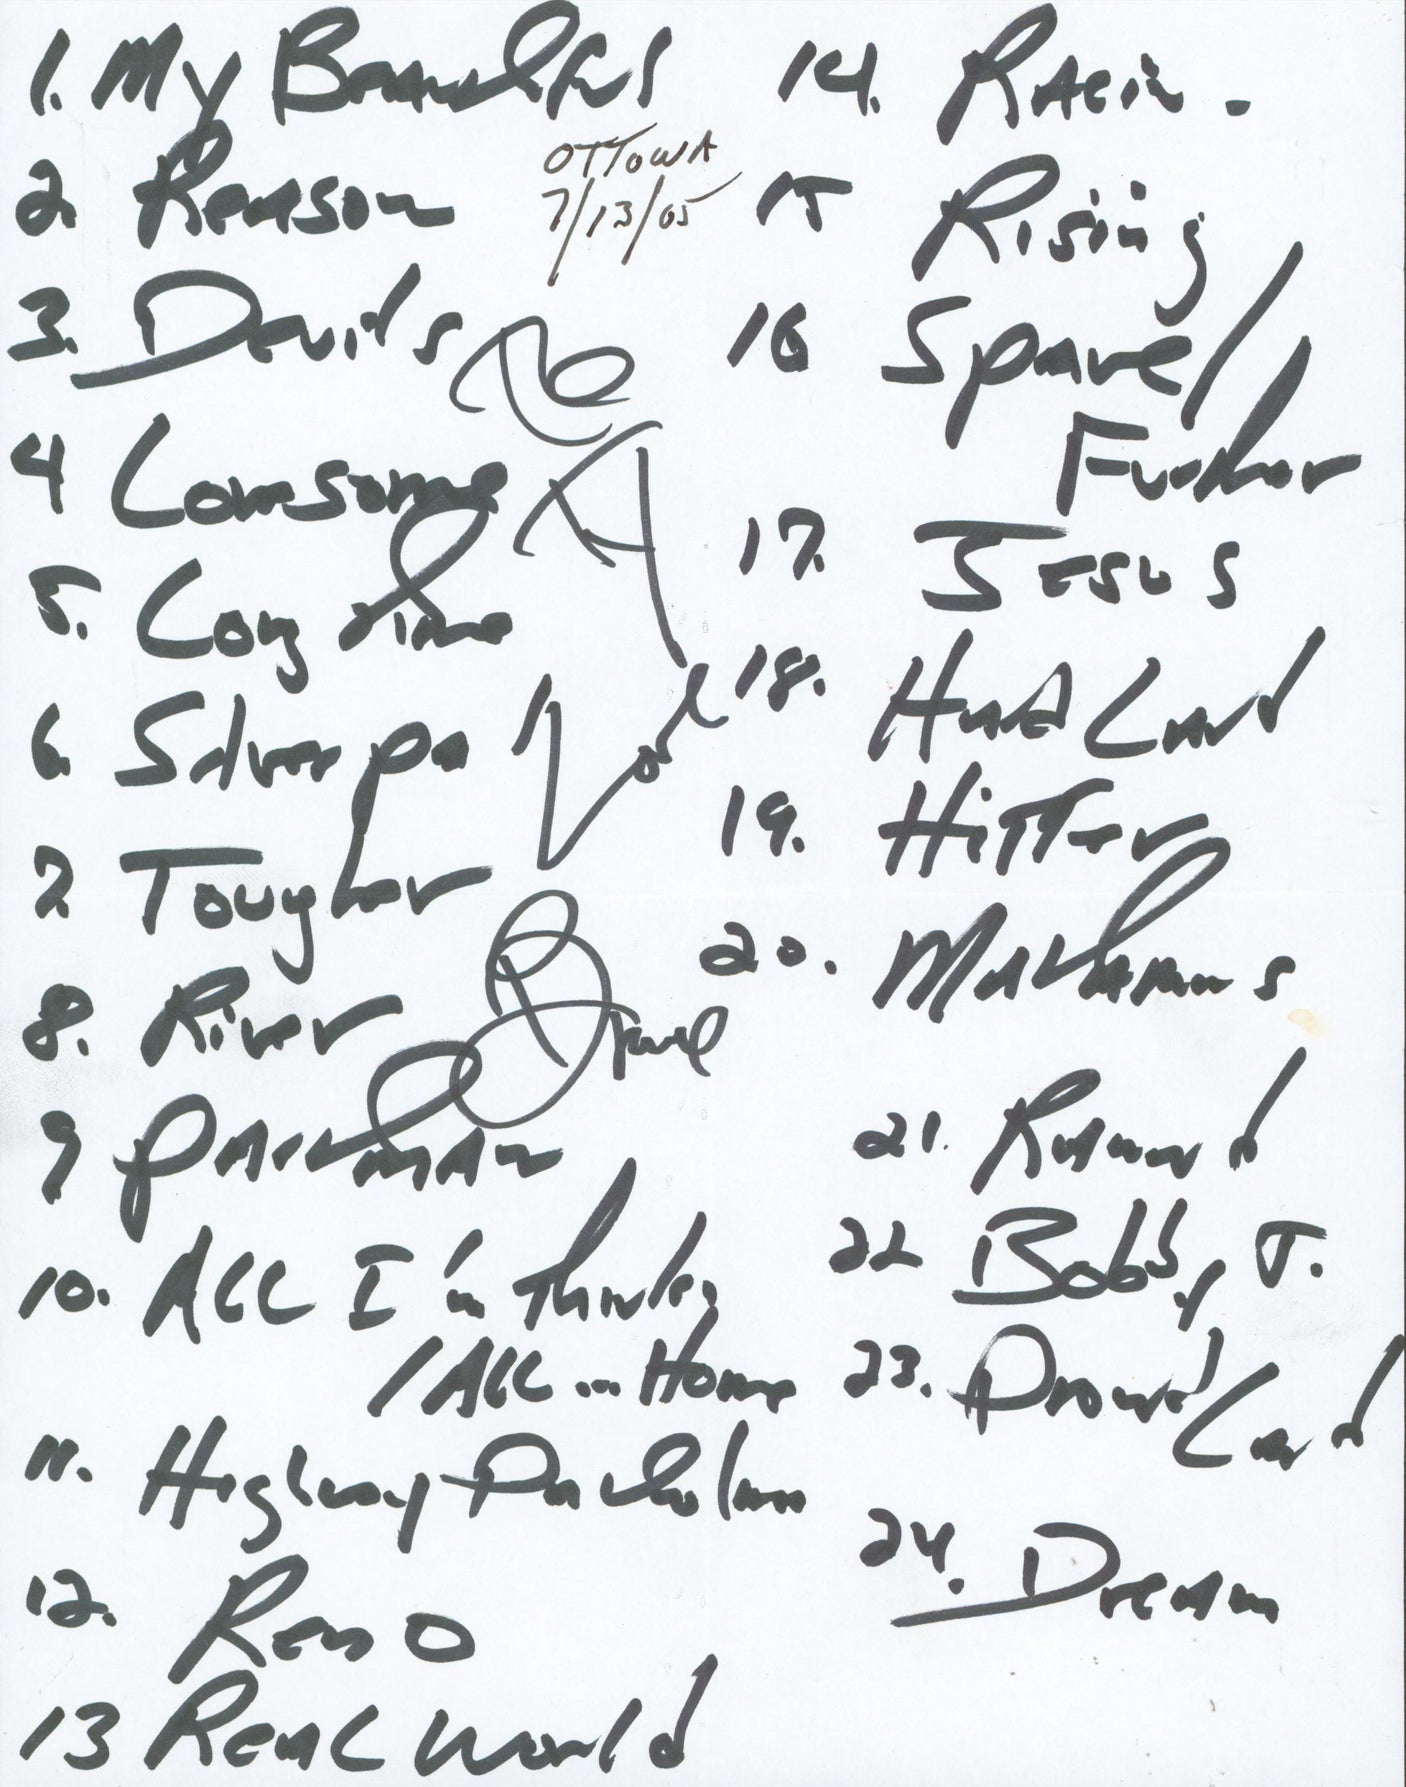 1. My Beautiful
2. Reason
OTTOWA
7/13/05
3. Devils
4 Lonesome
5. Long time
6. Silverpa
7. Tougher
8. River
9 PARTMAN
10. ALL I'm thinkin
/ ALL ... Home
11. Highway Patrolman
12. Reno
13 REAL World
14. Racin.
15 Rising
16 Spare /
Further
17. JESUS
18. Hard Land
19. Hitter
20. MATAMOROS
21. Ramrod
22 Bobby J.
23. Promised Land
24. Dream